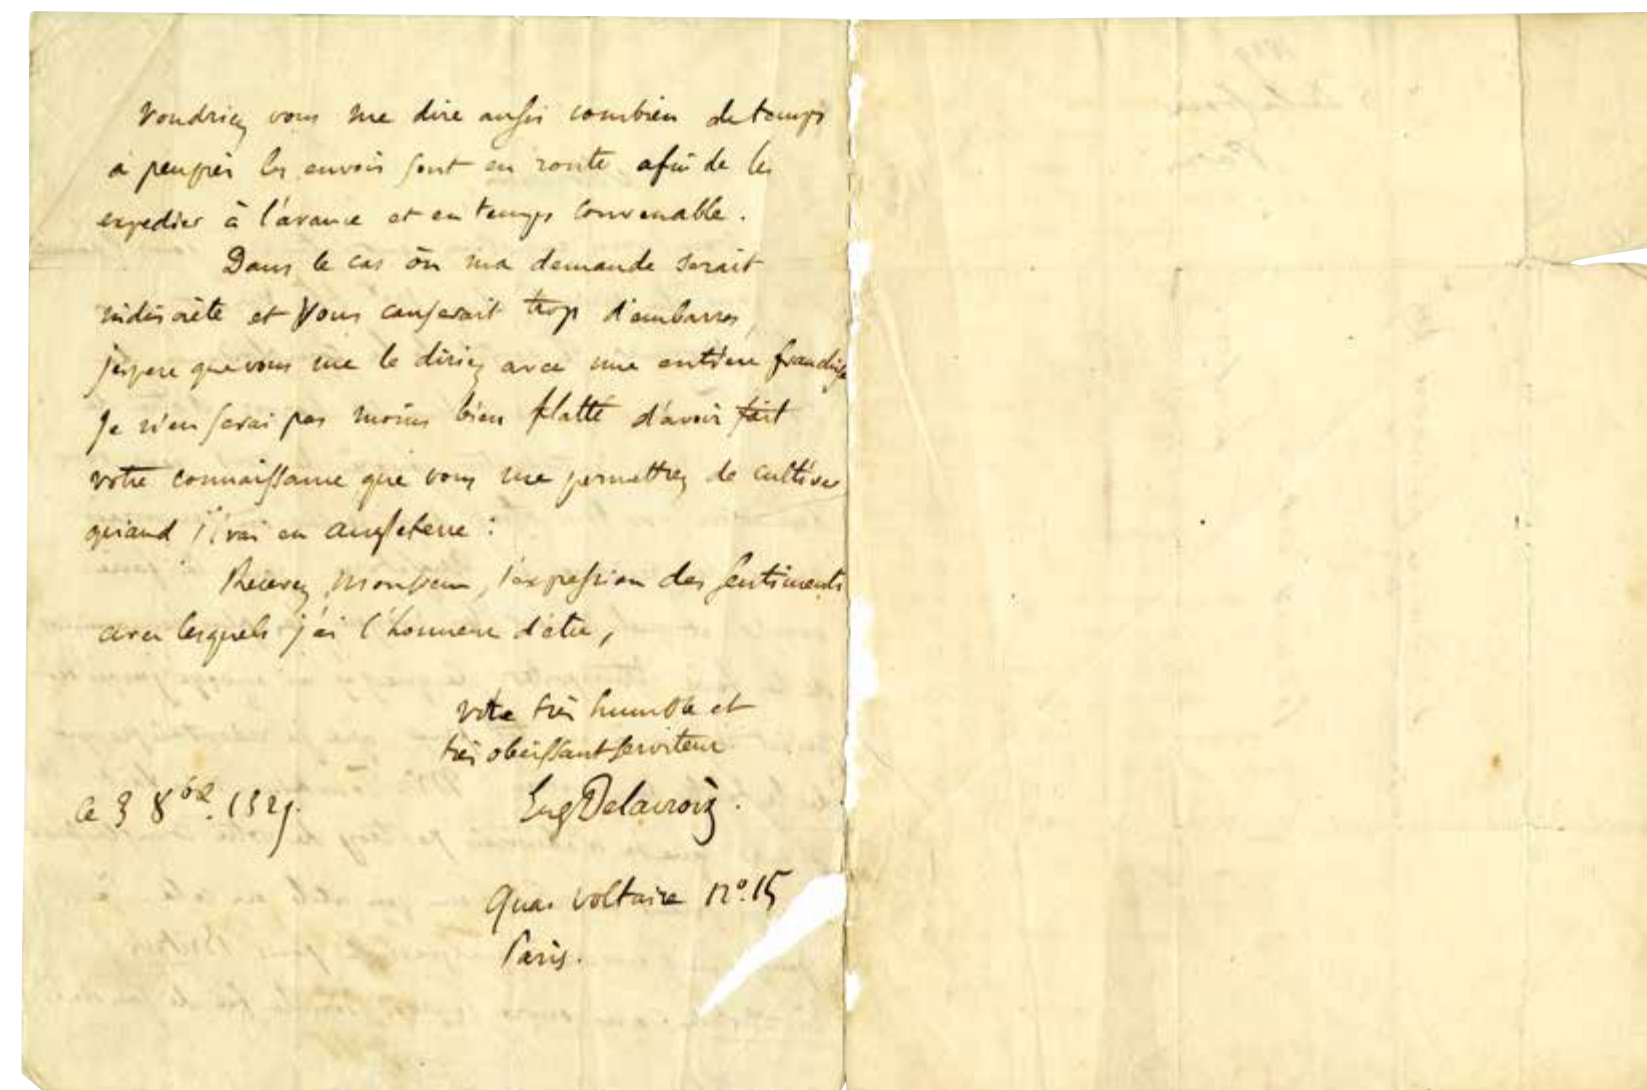 Voudriez vous me dire aussi combien de temps
à peuprès les envois sont en route afin de les
expedier à l'avance et en temps convenable.
Dans le cas òu ma demande serait
indiscrète et vous causerait trop d'embarras,
j'espere que vous me le diriez avec une entière franchise
Je n'en serai pas moins bien flatté d'avoir fait
votre connaissance que vous me permettrez de cultiver
quand j'irai en angleterre :
Recevez Monsieur, l'expression des sentiments
avec lesquels j'ai l'honneur d'être,
votre très humble et
très obéissant serviteur
Eug Delacroix.
ce 3 8bre. 1829.
Quai voltaire no. 15
Paris.